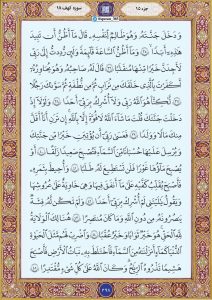 جزء ۱۵
سورة کهف ۱۸
وَدَخَلَ جَنَّتَهُ وَهُوَ ظَالِمٌ لِّنَفْسِهِ قَالَ مَا أَظُنُّ أَن تَبِيدَ
هَٰذِهِ أَبَدًا ﴿٣٥﴾ وَمَا أَظُنُّ السَّاعَةَ قَائِمَةً وَلَئِن رُّدِدتُّ إِلَىٰ رَبِّي
لَأَجِدَنَّ خَيْرًا مِّنْهَا مُنقَلَبًا ﴿٣٦﴾ قَالَ لَهُ صَاحِبُهُ وَهُوَ يُحَاوِرُهُ
أَكَفَرْتَ بِالَّذِي خَلَقَكَ مِن تُرَابٍ ثُمَّ مِن نُّطْفَةٍ ثُمَّ سَوَّاكَ رَجُلًا
﴿٣٧﴾ لَّٰكِنَّا هُوَ اللَّهُ رَبِّي وَلَا أُشْرِكُ بِرَبِّي أَحَدًا ﴿٣٨﴾ وَلَوْلَا إِذْ
دَخَلْتَ جَنَّتَكَ قُلْتَ مَا شَاءَ اللَّهُ لَا قُوَّةَ إِلَّا بِاللَّهِ إِن تَرَنِ أَنَا أَقَلَّ
مِنكَ مَالًا وَوَلَدًا ﴿٣٩﴾ فَعَسَىٰ رَبِّي أَن يُؤْتِيَنِ خَيْرًا مِّن جَنَّتِكَ
وَيُرْسِلَ عَلَيْهَا حُسْبَانًا مِّنَ السَّمَاءِ فَتُصْبِحَ صَعِيدًا زَلَقًا ﴿٤٠﴾
أَوْ يُصْبِحَ مَاؤُهَا غَوْرًا فَلَن تَسْتَطِيعَ لَهُ طَلَبًا ﴿٤١﴾ وَأُحِيطَ بِثَمَرِهِ
فَأَصْبَحَ يُقَلِّبُ كَفَّيْهِ عَلَىٰ مَا أَنفَقَ فِيهَا وَهِيَ خَاوِيَةٌ عَلَىٰ عُرُوشِهَا
وَيَقُولُ يَا لَيْتَنِي لَمْ أُشْرِكْ بِرَبِّي أَحَدًا ﴿٤٢﴾ وَلَمْ تَكُن لَّهُ فِئَةٌ
يَنصُرُونَهُ مِن دُونِ اللَّهِ وَمَا كَانَ مُنتَصِرًا ﴿٤٣﴾ هُنَالِكَ الْوَلَايَةُ
لِلَّهِ الْحَقِّ هُوَ خَيْرٌ ثَوَابًا وَخَيْرٌ عُقْبًا ﴿٤٤﴾ وَاضْرِبْ لَهُم مَّثَلَ الْحَيَاةِ
الدُّنْيَا كَمَاءٍ أَنزَلْنَاهُ مِنَ السَّمَاءِ فَاخْتَلَطَ بِهِ نَبَاتُ الْأَرْضِ فَأَصْبَحَ
هَشِيمًا تَذْرُوهُ الرِّيَاحُ وَكَانَ اللَّهُ عَلَىٰ كُلِّ شَيْءٍ مُّقْتَدِرًا ﴿٤٥﴾
۲۹۸